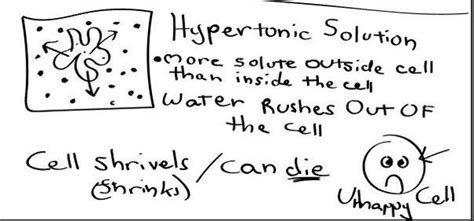 Hypertonic Solution
•more solute outside cell
than inside the cell
Water Rushes Out OF
the cell
Cell shrivels / can die
(shrinks)
Unhappy Cell